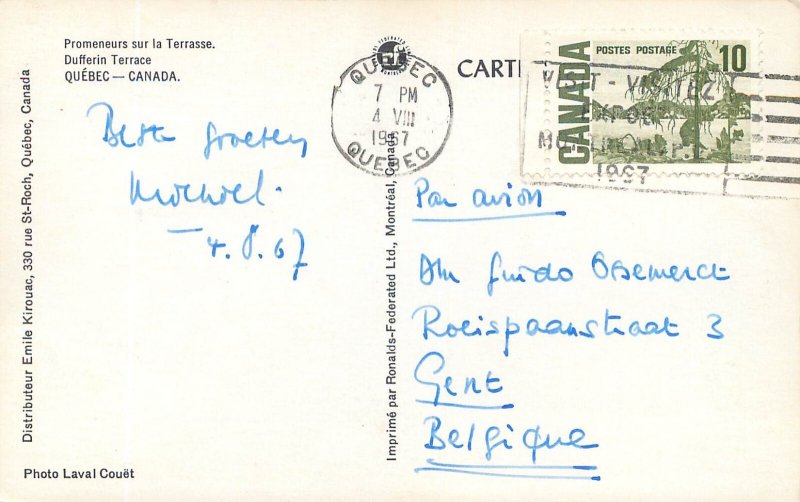 Promeneurs sur la Terrasse.
Dufferin Terrace
QUÉBEC — CANADA.
Best groeten
4.8.67
Distributeur Emile Kirouac, 330 rue St-Roch, Québec, Canada
Photo Laval Couët
Imprimé par Ronalds-Federated Ltd., Montréal, Canada
QUÉBEC
7 PM
4 VIII
1967
QUÉBEC
CART
CANADA
POSTES POSTAGE
10
VISIT - VISITEZ
EXPO
1967
Par avion
Guido
3
Gent
Belgique